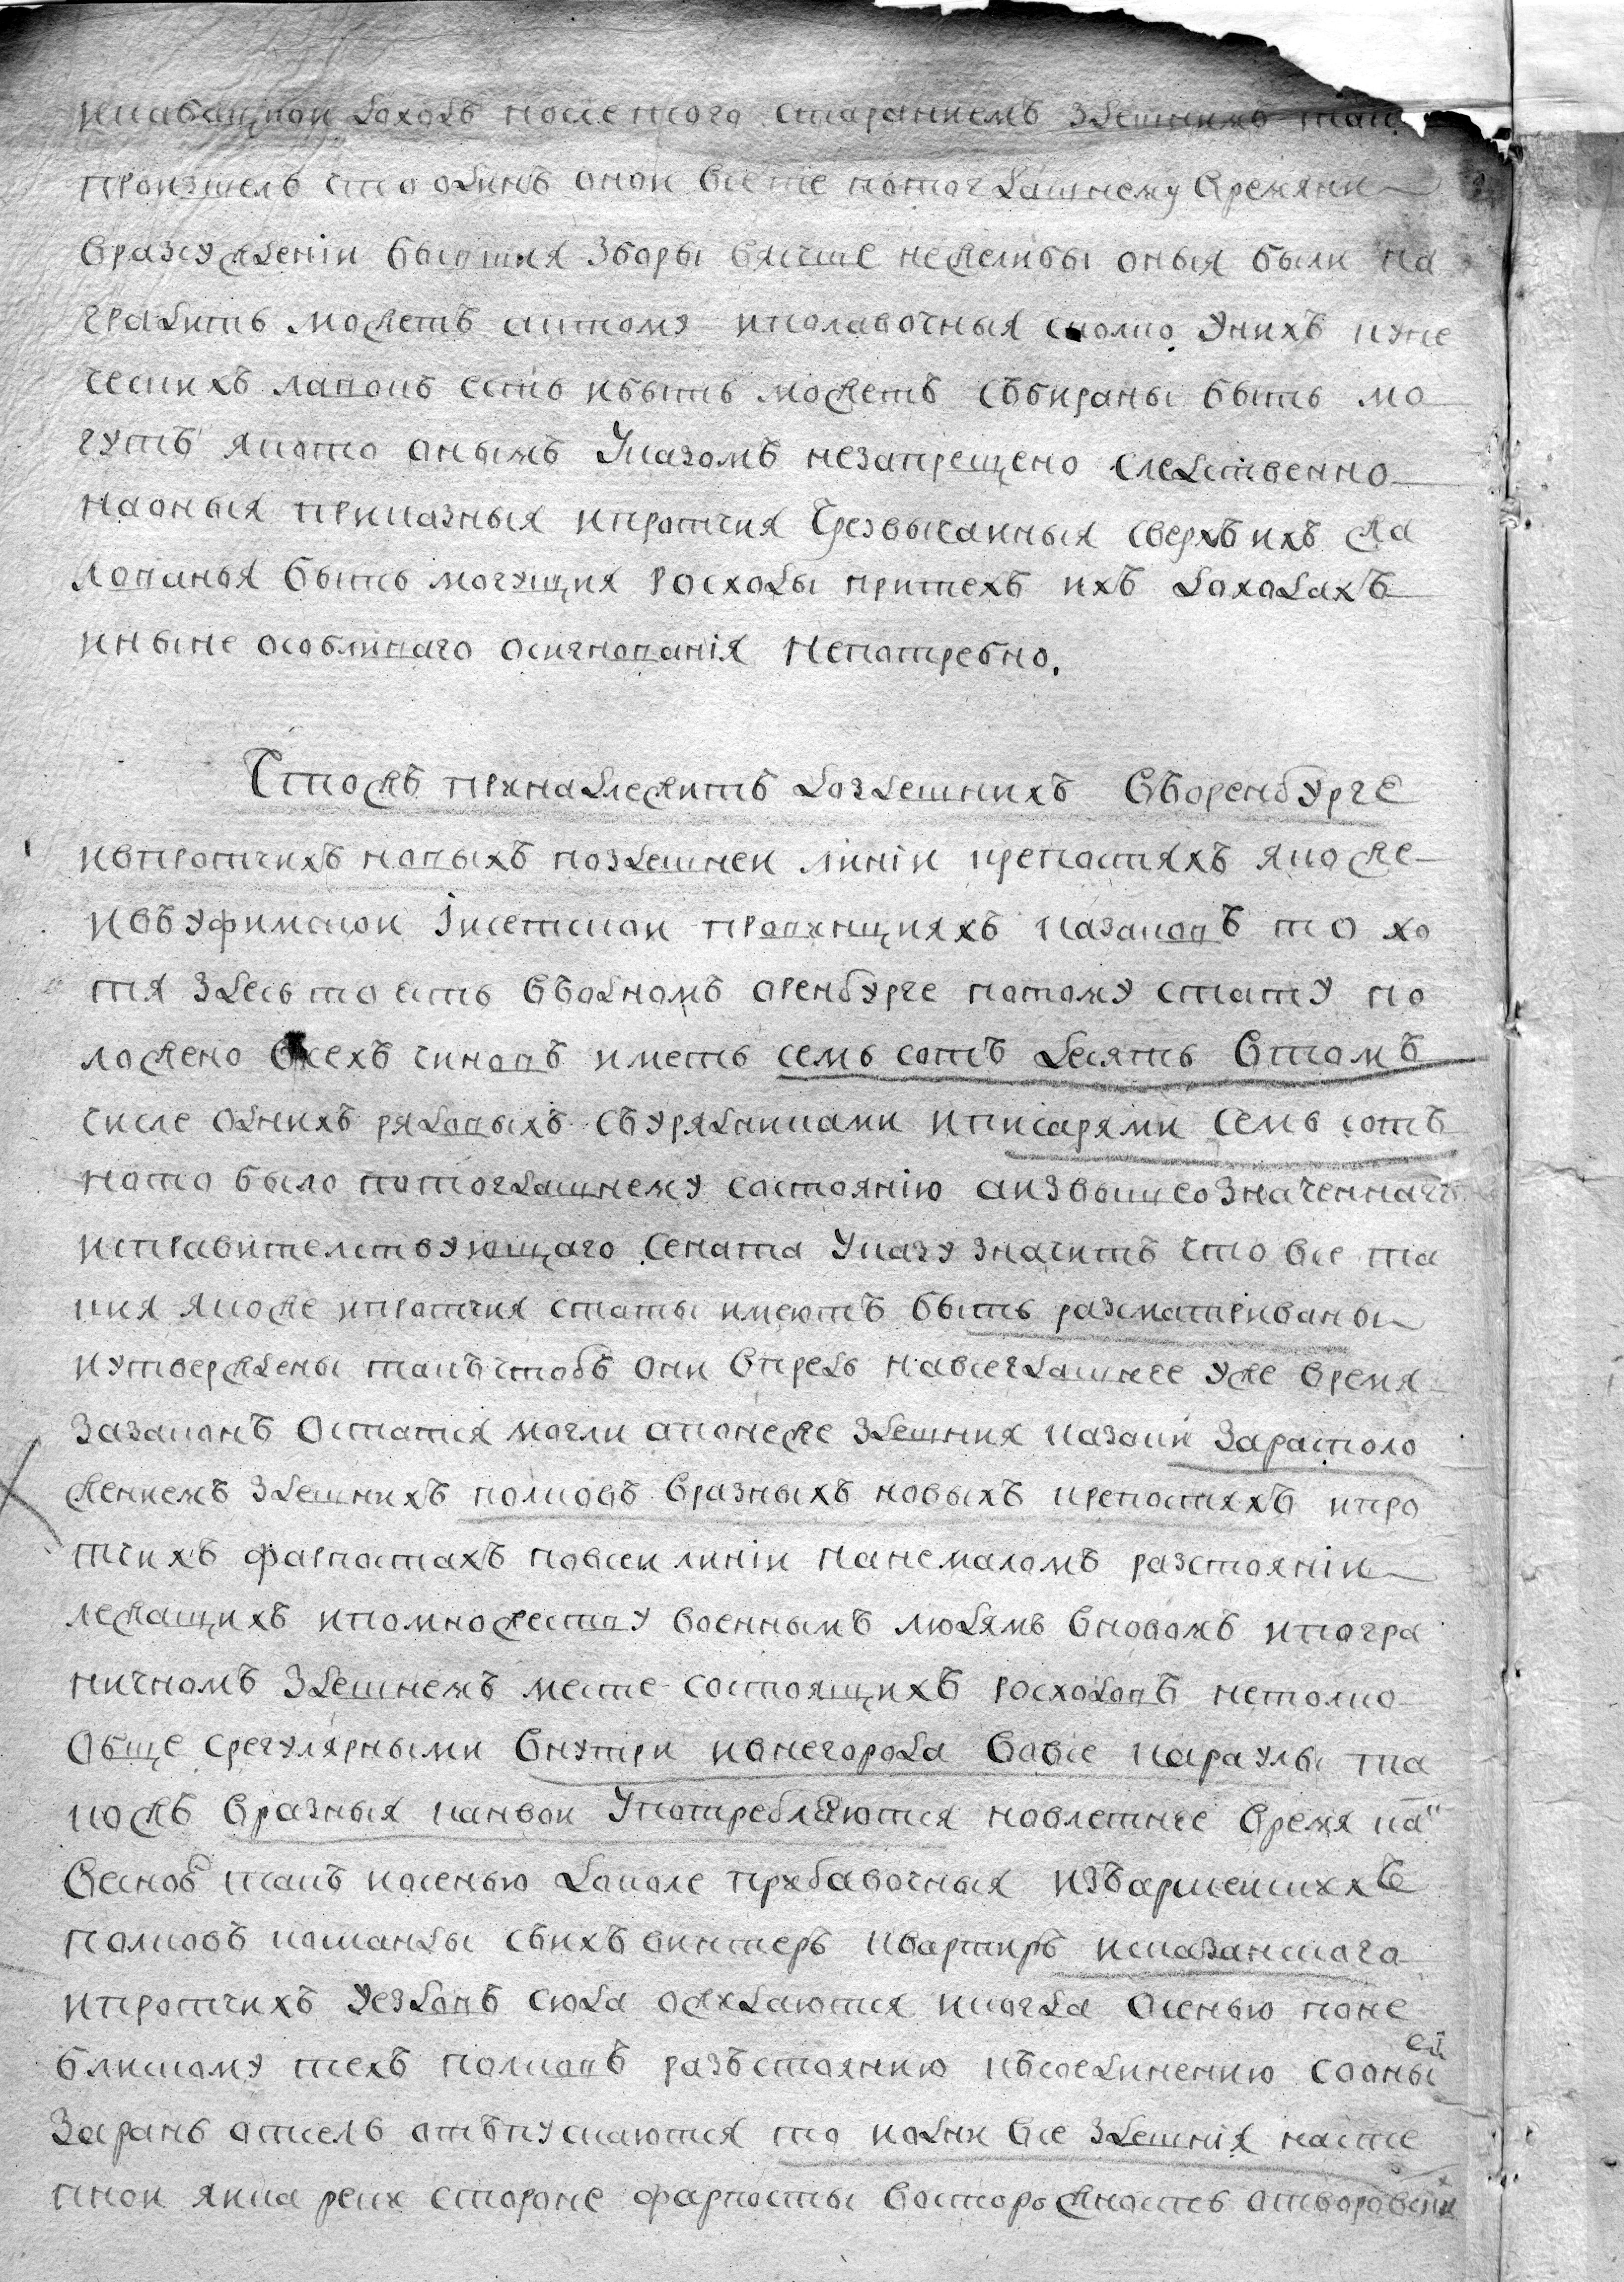 и кабацкой доходъ после того старанием здешнимъ так
произшелъ что одинъ оной все те по тогдашнему времяни
в разсуждении бывшия зборы вящше нежелибы оныя были на
градить можетъ а ктому и полавочныя сколко у нихъ куп
ческихъ лавокъ есть и быть можетъ събираны быть мо
гутъ яко то онымъ Указомъ незапрещено следственно
на оныя приказныя и протчия Чрезвычаиныя сверхъ ихъ жа
лованья быть могущия росходы при техъ ихъ доходахъ
и ныне особливаго осигнованія непотребно.
Чтожъ принадлежитъ до здешнихъ въ Оренбурге
и в протчихъ новыхъ по здешней лініи крепостяхъ якоже
и въ Уфимской Iсетской правинцияхъ казаковъ то хо
тя здесь то есть въ одномъ Оренбурге по тому стату по
ложено всехъ чиновъ иметь семь сотъ десять в томъ
числе однихъ рядовыхъ съ урядниками и писарями семь сотъ
но то было по тогдашнему состоянію а из вышеозначеннагъ
и правителствующаго Сената Указу значитъ что все та
кия якоже и протчия статы имеютъ быть разматриваны
и утверждены такъ чтобъ они впредь на всегдашнее уже время
за законъ остатся могли а понеже здешния казаки за располо
жениемъ здешнихъ полковъ в разныхъ новыхъ крепостяхъ и про
тчихъ фарпостахъ по всеи линіи на немаломъ разстояніи
лежащихъ и по множеству военнымъ людямъ в новомъ и погра
ничномъ здешнемъ месте состоящихъ росходовъ не толко
обще с регулярными внутри и вне города во все караулы та
кожъ в разныя канвои употребляются но в летнее время ка"
весною такъ и осенью доколе прибавочныя изъ армеискихъ
полковъ команды съ ихъ винтеръ квартиръ и с казанского
и протчихъ уездовъ сюда ожидаются и когда осенью по не
блискому техъ полковъ разъстоянию къ соединению с оны
ей
Заранъ отсель отъпускаются то и одни все здешнія на сте
пной яика реки стороне фарпосты в осторожность от воровски